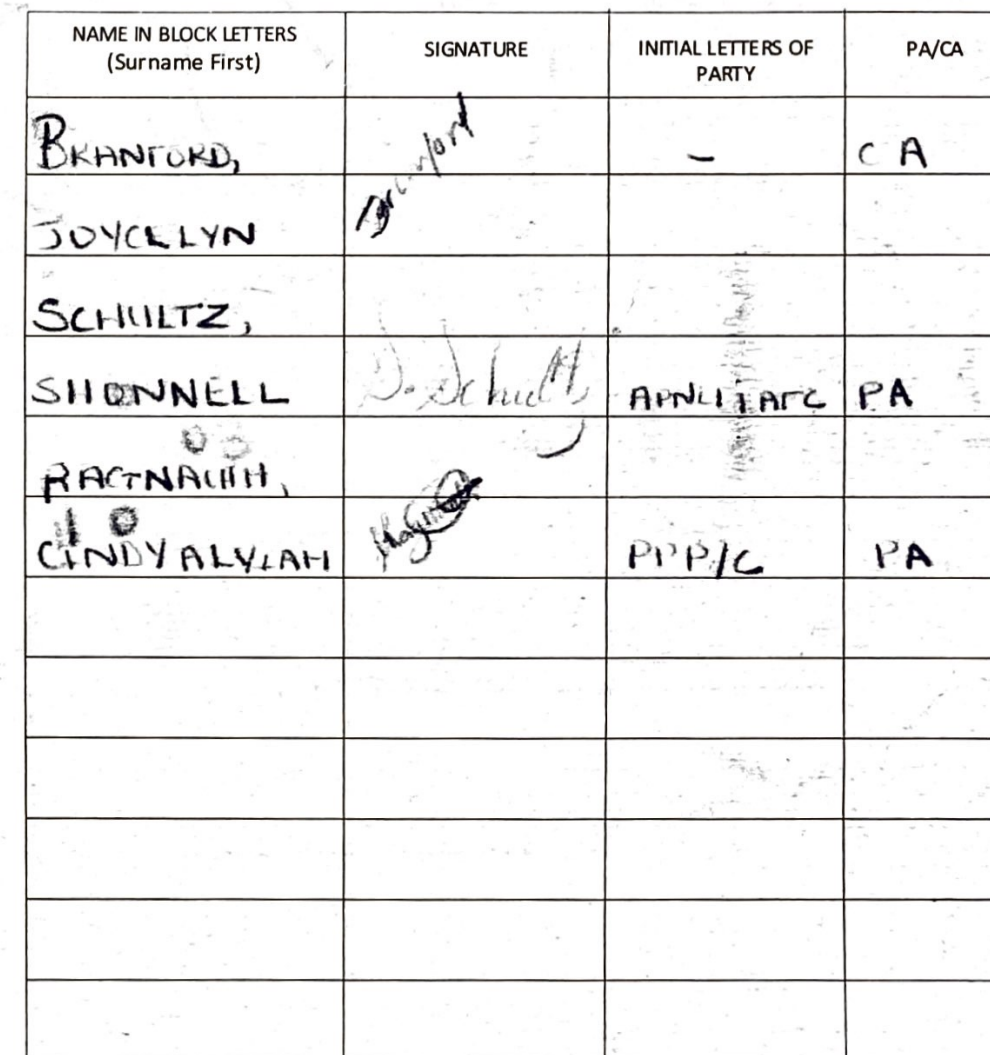 NAME IN BLOCK LETTERS (Surname First) SIGNATURE INITIAL LETTERS OF PARTY PA/CA
BRANFORD, Branford - CA
JOYCELYN
SCHULTZ,
SHONNELL S. Schultz APNU+AFC PA
CINDY PPP/C PA